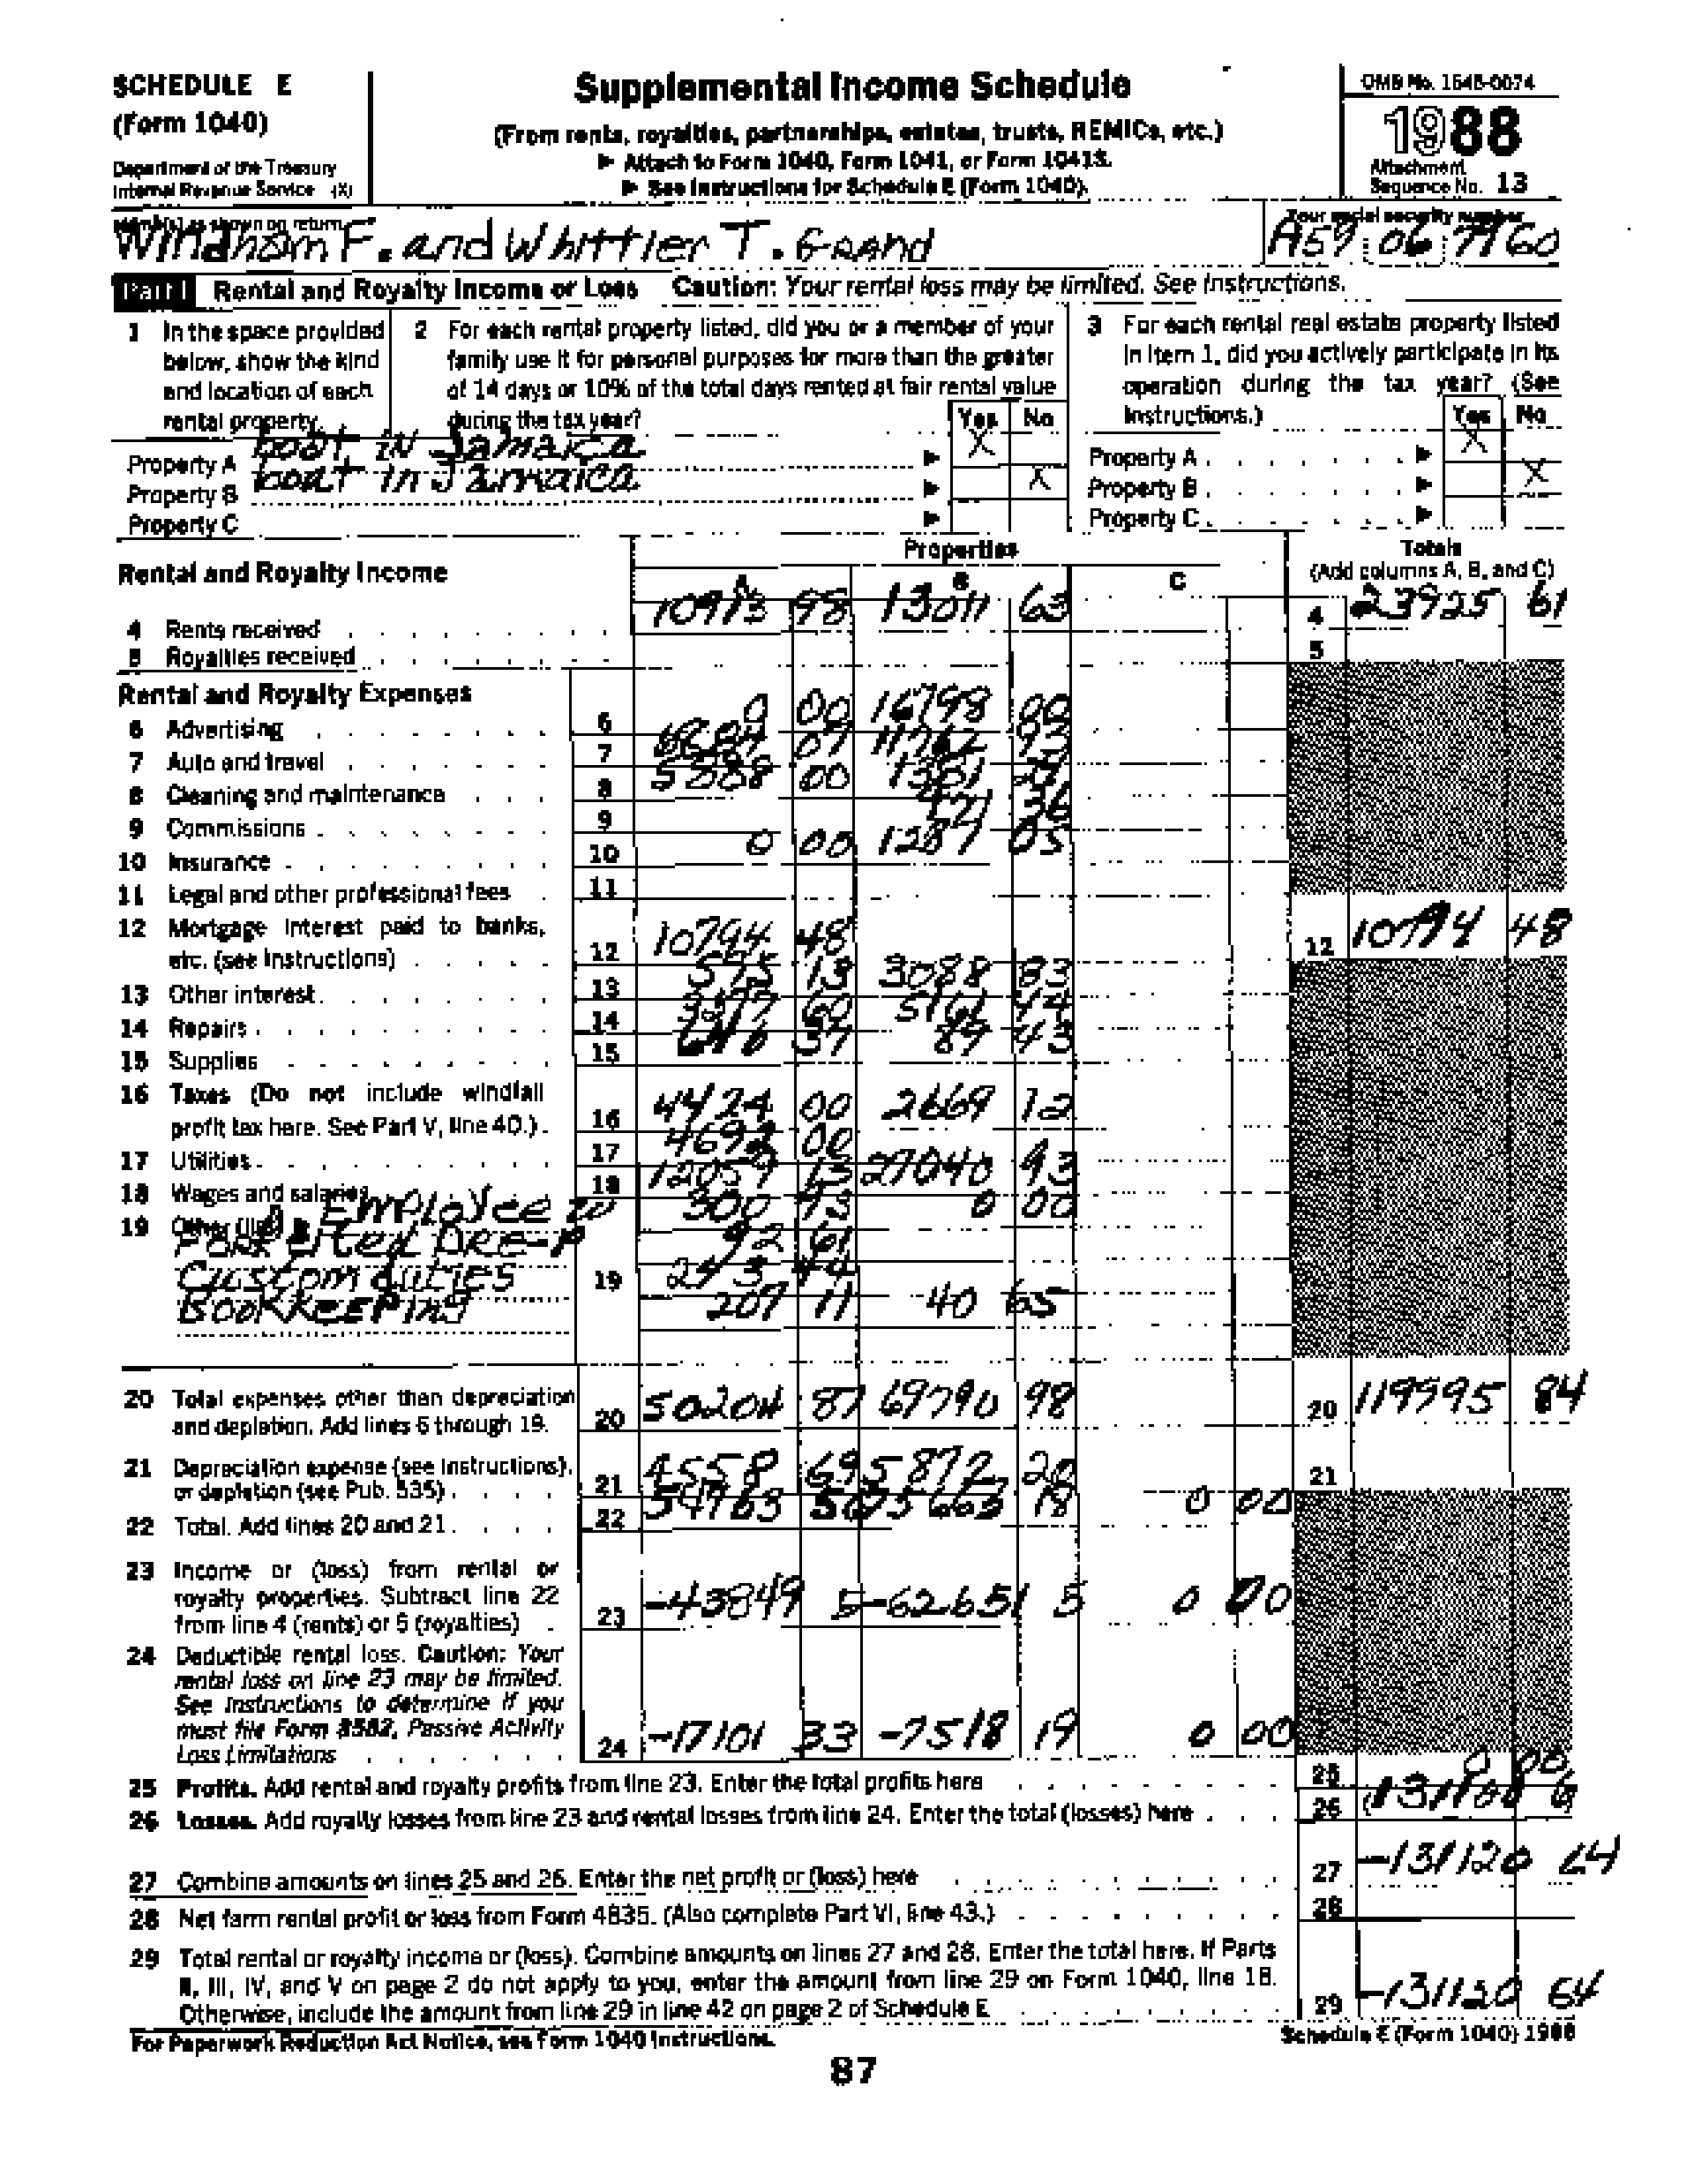 SCHEDULE E
(Form 1040)
Department of the Treasury
Internal Revenue Service (X)
Supplemental Income Schedule
(From rents, royalties, partnerships, estates, trusts, REMICs, etc.)
▶ Attach to Form 1040, Form 1041, or Form 1041S.
▶ See Instructions for Schedule E (Form 1040).
OMB No. 1545-0074
1988
Attachment
Sequence No. 13
Name(s) as shown on return
Windham F. and Whittier T. Grand
Your social security number
A59 06 7960
Part I Rental and Royalty Income or Loss Caution: Your rental loss may be limited. See Instructions.
1 In the space provided below, show the kind and location of each rental property.
2 For each rental property listed, did you or a member of your family use it for personal purposes for more than the greater of 14 days or 10% of the total days rented at fair rental value during the tax year?
Yes No
3 For each rental real estate property listed in item 1, did you actively participate in its operation during the tax year? (See Instructions.)
Yes No
Property A boat in Jamaica ▶ X Property A ▶ X
Property B boat in Jamaica ▶ X Property B ▶ X
Property C ▶ Property C ▶
Rental and Royalty Income
Properties
A B C
Totals
(Add columns A, B, and C)
4 Rents received 10913 98 13011 63 4 23925 61
5 Royalties received 5
Rental and Royalty Expenses
6 Advertising 6 0 00 16798 00
7 Auto and travel 7 07 93
8 Cleaning and maintenance 8 00
9 Commissions 9
10 Insurance 10 0 00 1287 05
11 Legal and other professional fees 11
12 Mortgage interest paid to banks, etc. (see Instructions) 12 10794 48 12 10794 48
13 Other interest 13 595 13 3088 83
14 Repairs 14 60 5161 44
15 Supplies 15 37 89 43
16 Taxes (Do not include windfall profit tax here. See Part V, line 40.) 16 4424 00 2669 12
17 Utilities 17 00
18 Wages and salaries 18 12059 13 27040 93
19 Other (list) ▶ Employee 300 93 0 00
92 61
Custom duties 19
Bookkeeping 207 11 40 65
20 Total expenses other than depreciation and depletion. Add lines 6 through 19. 20 50204 87 69790 98 20 119995 84
21 Depreciation expense (see Instructions), or depletion (see Pub. 535) 21 4558 69 5872 20 21
22 Total. Add lines 20 and 21 22 54763 56 75663 18 0 00
23 Income or (loss) from rental or royalty properties. Subtract line 22 from line 4 (rents) or 5 (royalties) 23 -43849 5 -62651 5 0 00
24 Deductible rental loss. Caution: Your rental loss on line 23 may be limited. See Instructions to determine if you must file Form 8582, Passive Activity Loss Limitations 24 -17101 33 -7518 19 0 00
25 Profits. Add rental and royalty profits from line 23. Enter the total profits here 25 0 00
26 Losses. Add royalty losses from line 23 and rental losses from line 24. Enter the total (losses) here 26
27 Combine amounts on lines 25 and 26. Enter the net profit or (loss) here 27 -131120 64
28 Net farm rental profit or loss from Form 4835. (Also complete Part VI, line 43.) 28
29 Total rental or royalty income or (loss). Combine amounts on lines 27 and 28. Enter the total here. If Parts II, III, IV, and V on page 2 do not apply to you, enter the amount from line 29 on Form 1040, line 18. Otherwise, include the amount from line 29 in line 42 on page 2 of Schedule E 29 -131120 64
For Paperwork Reduction Act Notice, see Form 1040 Instructions.
Schedule E (Form 1040) 1988
87